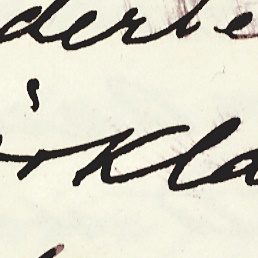 derte
örkla